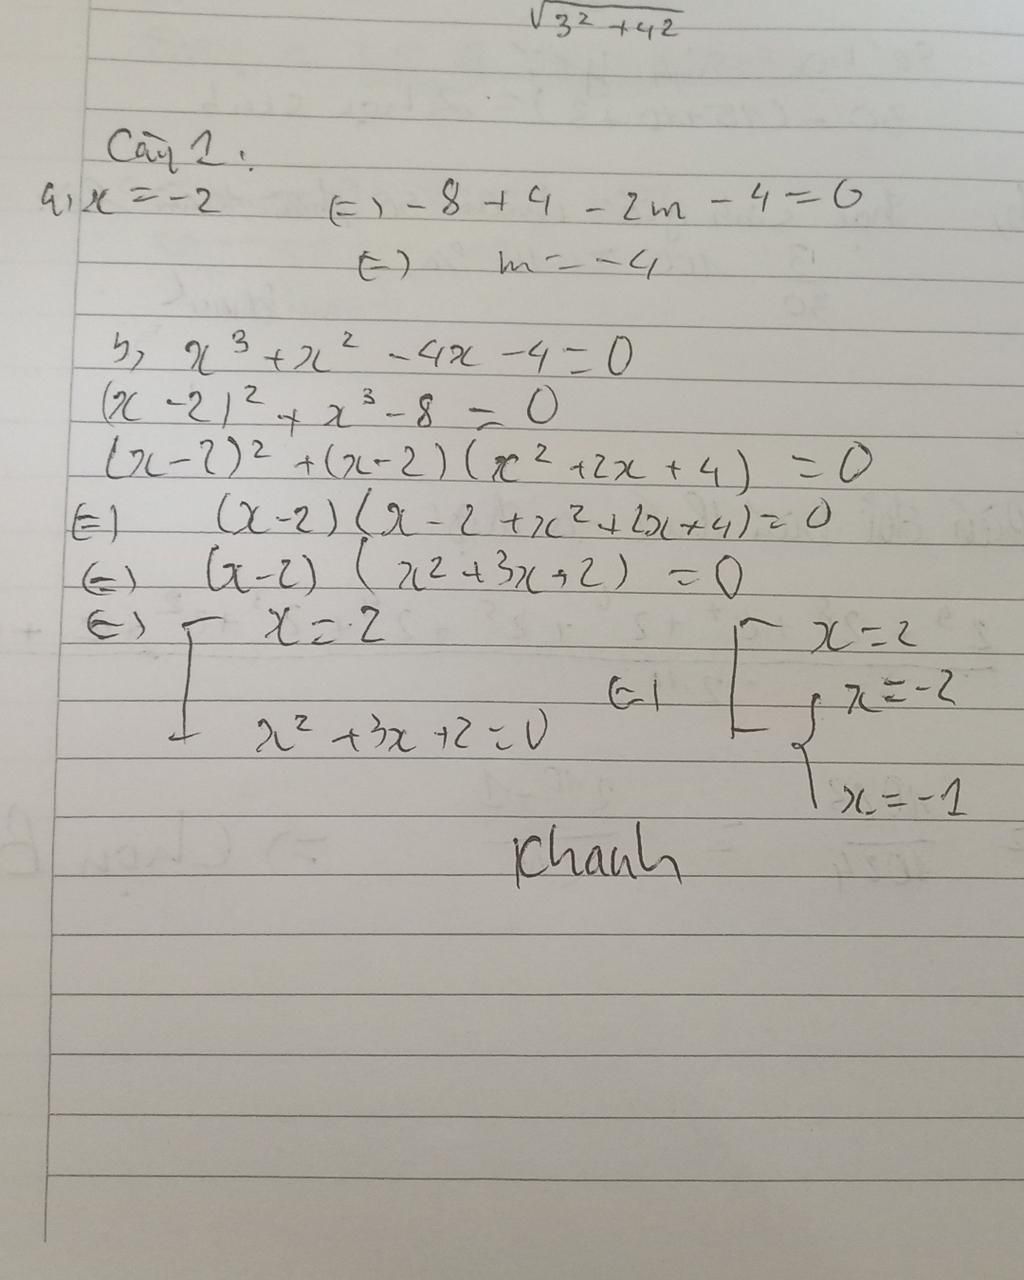 √3² + 4²
Câu 1:
a, x = -2 (=) -8 + 4 - 2m - 4 = 0
(=) m = -4
b, x³ + x² - 4x - 4 = 0
(x - 2)² + x³ - 8 = 0
(x - 2)² + (x - 2) (x² + 2x + 4) = 0
(=) (x - 2) (x - 2 + x² + 2x + 4) = 0
(=) (x - 2) (x² + 3x + 2) = 0
(=) [ x = 2 (=) [ x = 2
{ x = -2
x² + 3x + 2 = 0
x = -1
Khanh